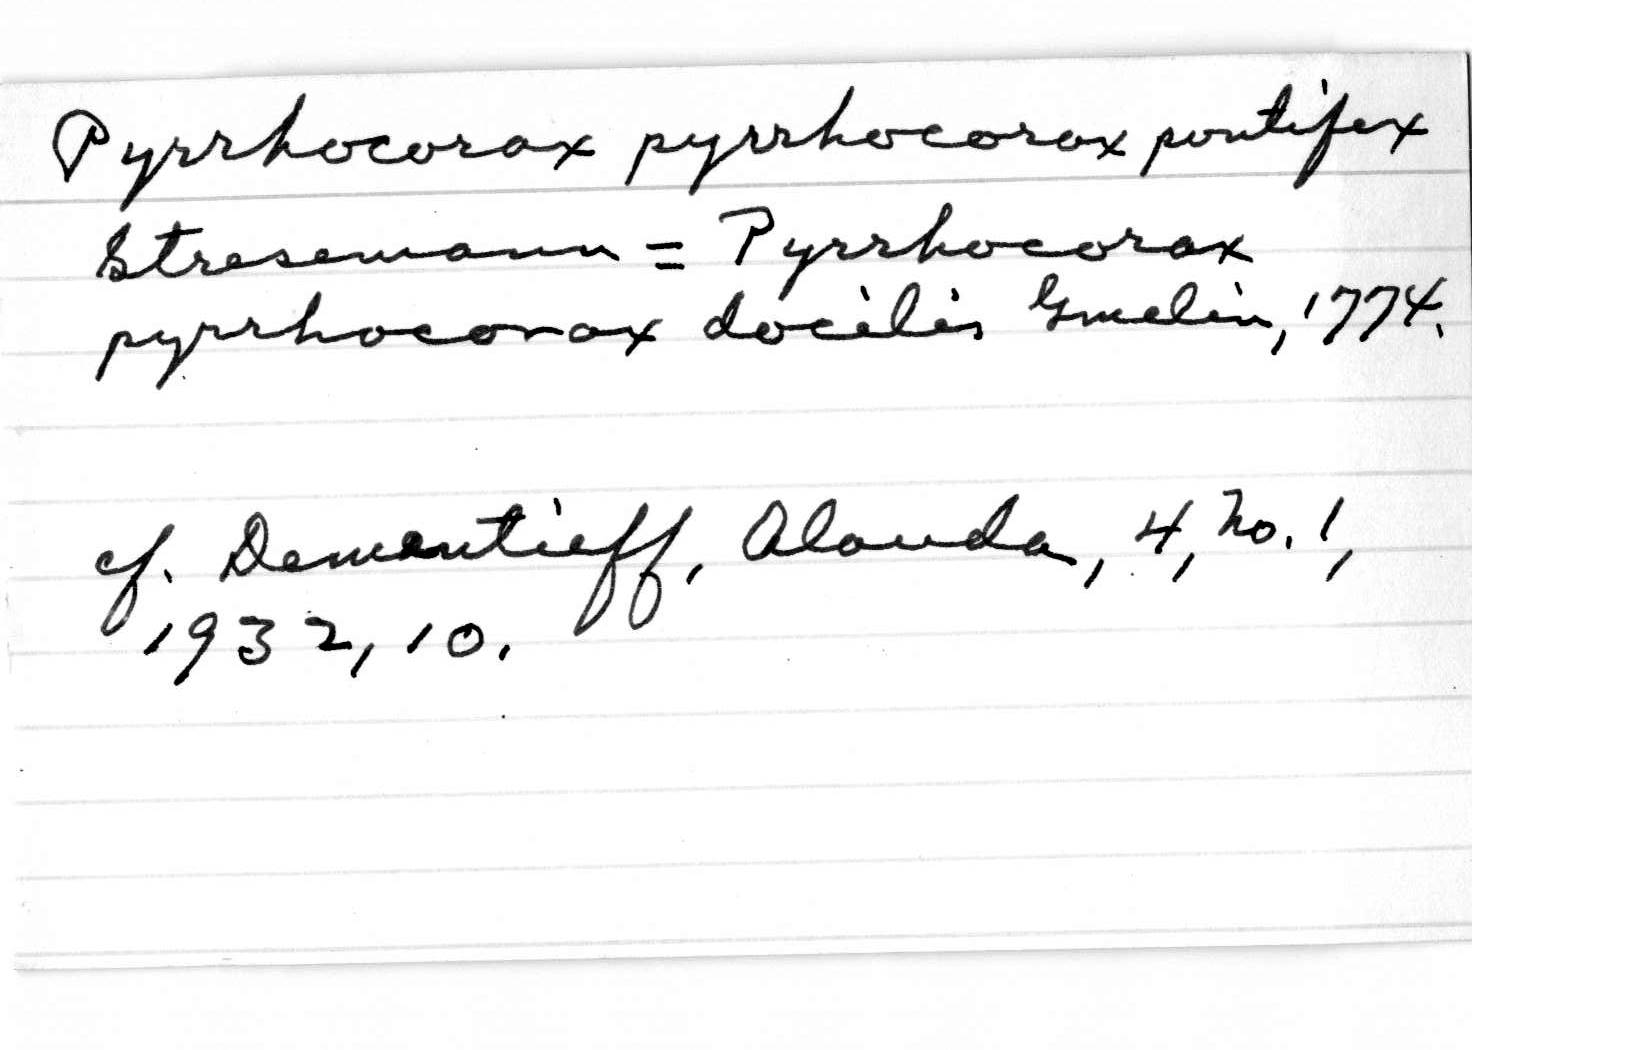 Pyrrhocorax pyrrhocorax pontifex
Stresemann = Pyrrhocorax
pyrrhocorax docilis Gmelin, 1774.
cf. Dementieff, Alauda, 4, no. 1,
1932, 10.